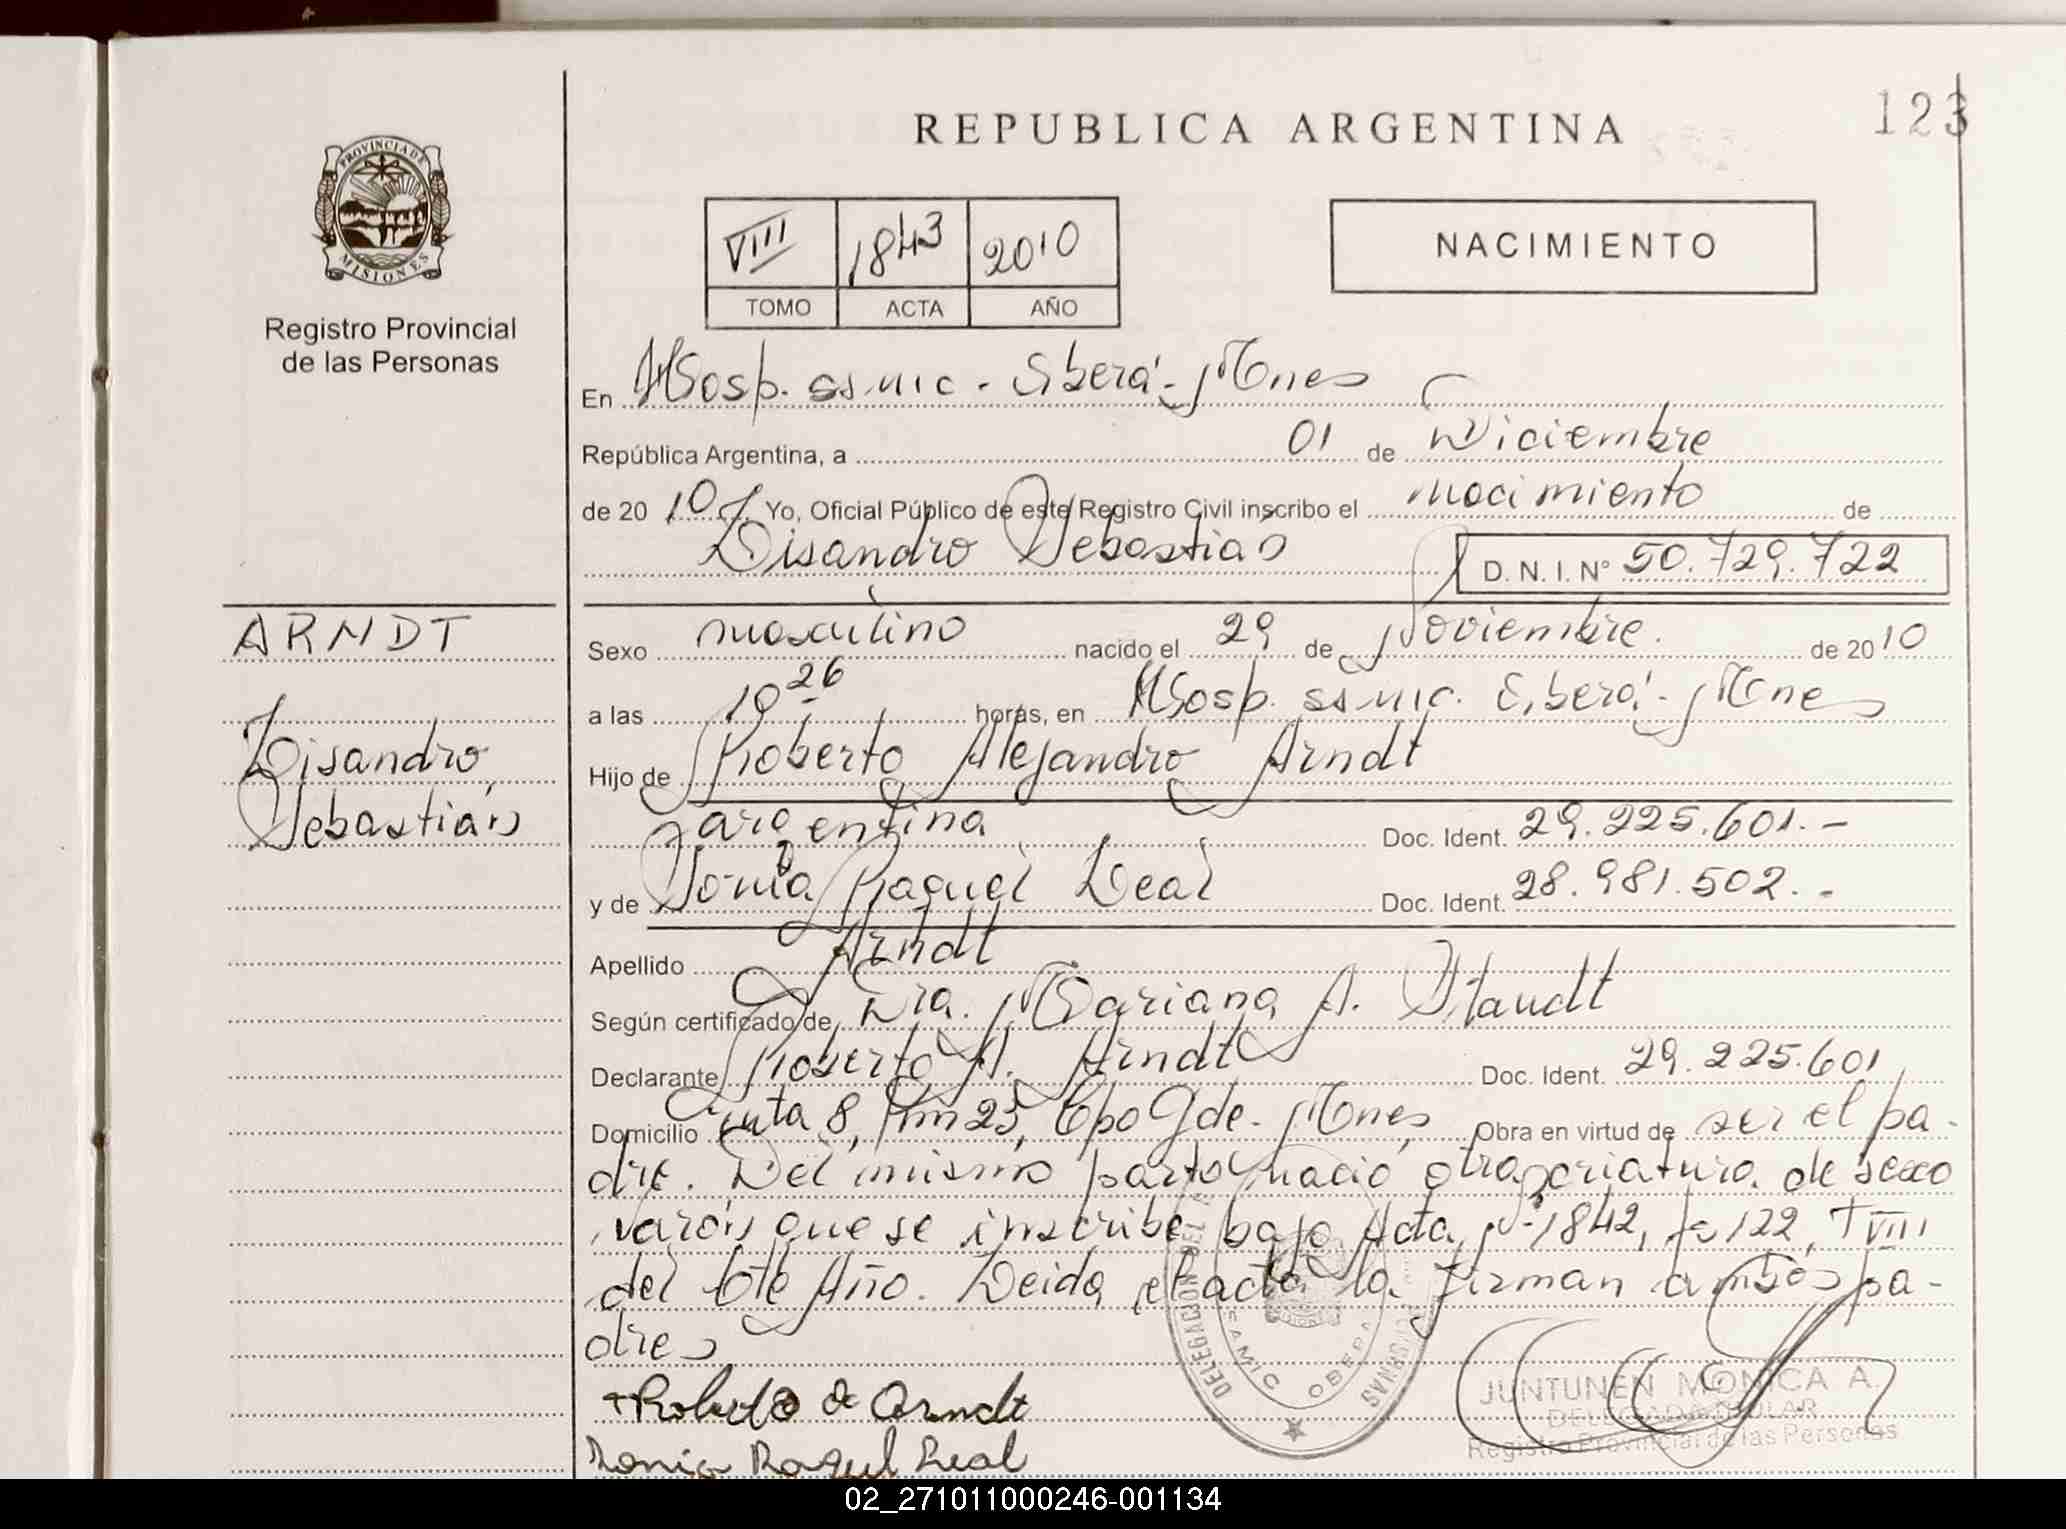 REPUBLICA ARGENTINA
123
PROVINCIA DE
MISIONES
Registro Provincial
de las Personas
VIII 1843 2010
TOMO ACTA AÑO
NACIMIENTO
En Hosp. ssmic - Oberá - Mnes
República Argentina, a 01 de Diciembre
de 2010 Yo, Oficial Público de este Registro Civil inscribo el nacimiento de
Lisandro Sebastián
D. N. I. N° 50.729.722
ARNDT
Lisandro
Sebastián
Sexo masculino nacido el 29 de Noviembre. de 2010
a las 10 26 horas, en Hosp. ssmic. Oberá - Mnes
Hijo de Roberto Alejandro Arndt
argentina Doc. Ident. 29.225.601.-
y de Sonia Raquel Leal Doc. Ident. 28.981.502.-
Apellido Arndt
Según certificado de Dra. Mariana A. Staudt
Declarante Roberto A. Arndt Doc. Ident. 29.225.601
Domicilio Ruta 8, Km 25, Cpo Gde. Mnes Obra en virtud de ser el pa-
dre. Del mismo parto nació otra criatura de sexo
varón que se inscribe bajo Acta N° 1842, Fº 122, T VIII
del Cte Año. Leida el acta la firman ambos pa-
dres
Roberto A Arndt
Sonia Raquel Leal
DELEGACION DEL
PERSONAS
SAMIC OBERA
JUNTUNEN MONICA A.
DELEGADA TITULAR
Registro Provincial de las Personas
02_271011000246-001134